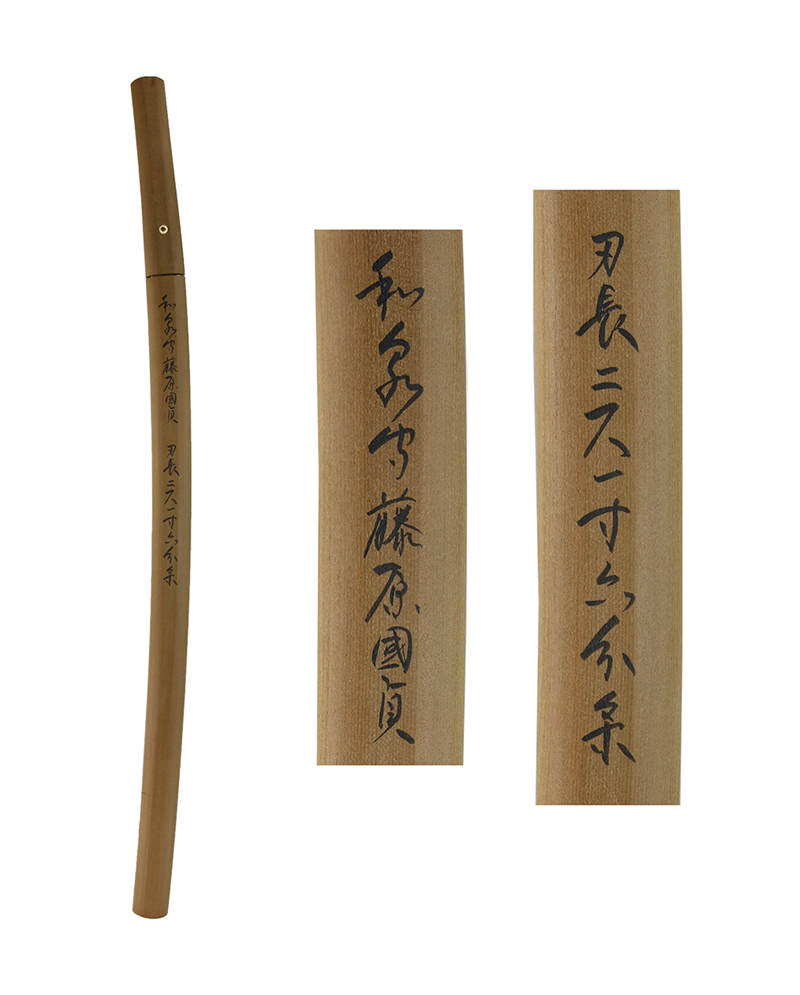 和泉守藤原國貞 刃長二尺一寸六分余
和泉守藤原國貞
刃長二尺一寸六分余